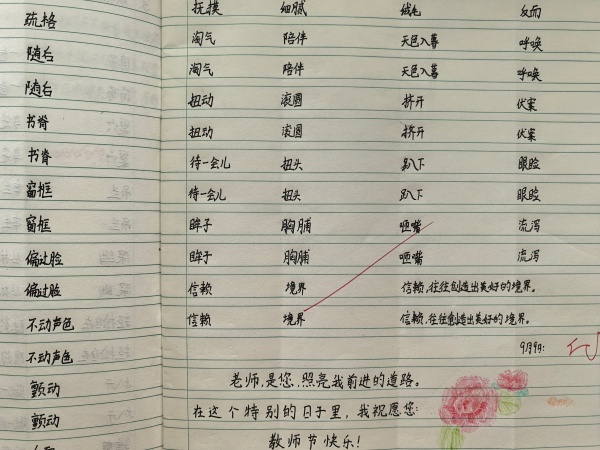 疏格
随后
随后
书脊
书脊
窗框
窗框
偏过脸
偏过脸
不动声色
不动声色
颤动
颤动
抚摸 细腻 绒毛 反而
淘气 陪伴 天色入暮 呼唤
淘气 陪伴 天色入暮 呼唤
扭动 滚圆 挤开 伏案
扭动 滚圆 挤开 伏案
待一会儿 扭头 趴下 眼睑
待一会儿 扭头 趴下 眼睑
眸子 胸脯 咂嘴 流泻
眸子 胸脯 咂嘴 流泻
信赖 境界 信赖,往往创造出美好的境界。
信赖 境界 信赖,往往创造出美好的境界。
9月9日:
老师,是您,照亮我前进的道路。
在这个特别的日子里,我祝愿您:
教师节快乐!